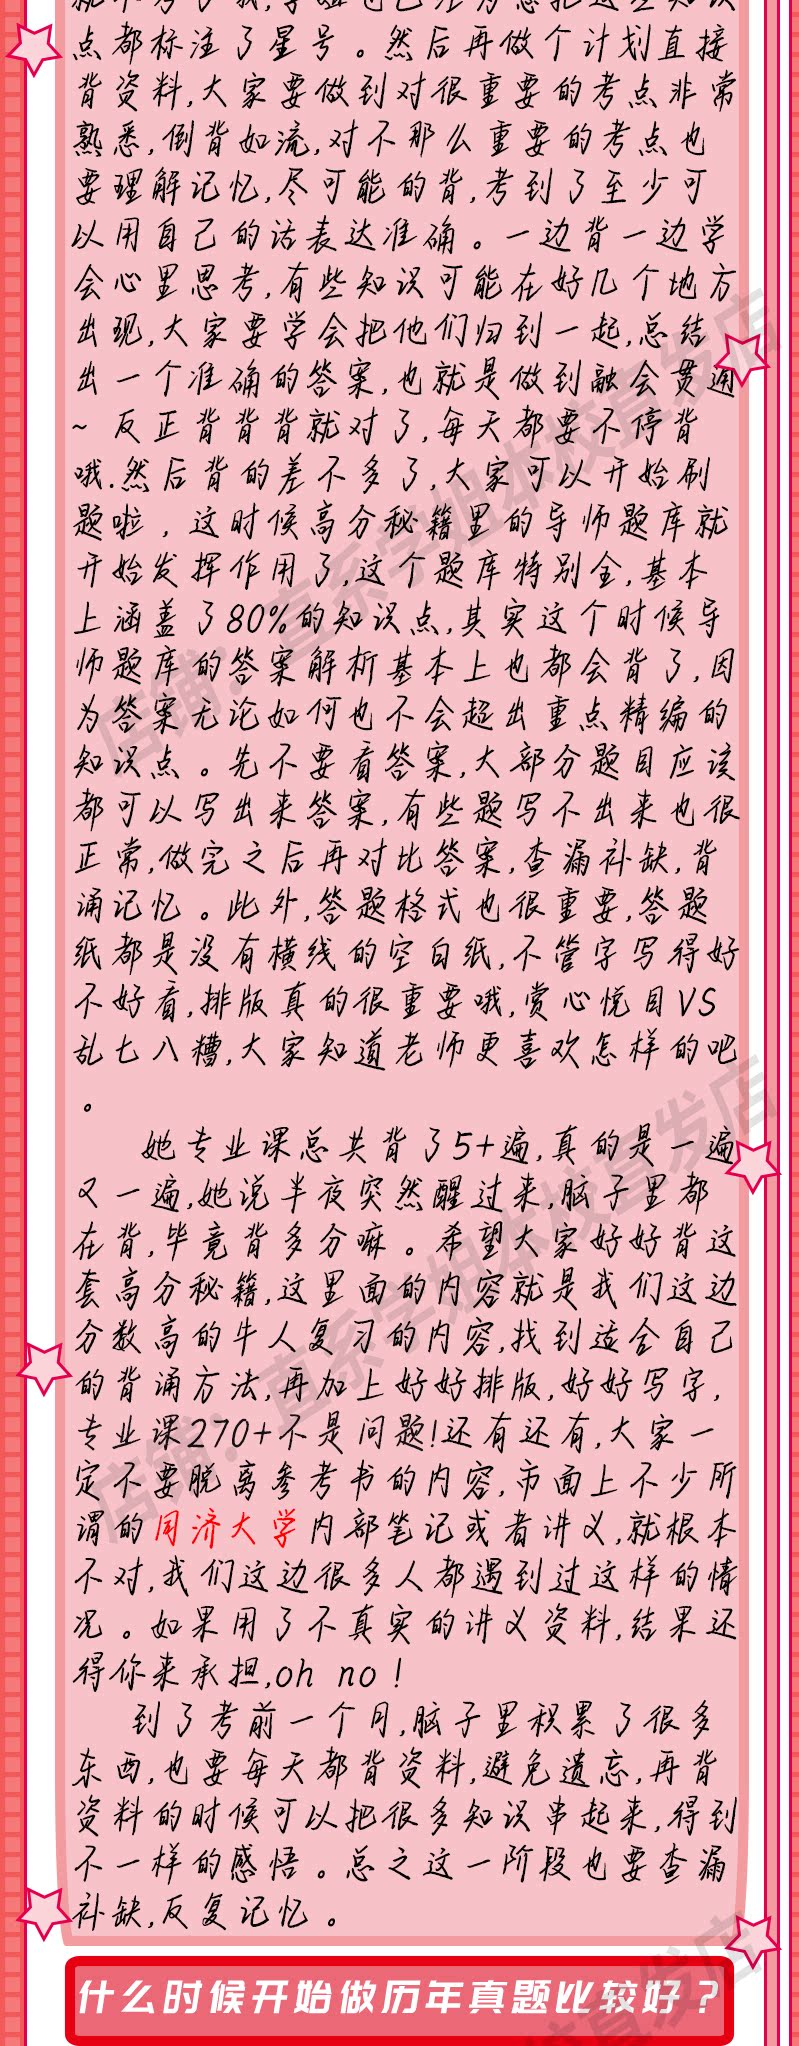 点都标注了星号。然后再做个计划直接
背资料,大家要做到对很重要的考点非常
熟悉,倒背如流,对不那么重要的考点也
要理解记忆,尽可能的背,考到了至少可
以用自己的话表达准确。一边背一边学
会心里思考,有些知识可能在好几个地方
出现,大家要学会把他们归到一起,总结
出一个准确的答案,也就是做到融会贯通
~ 反正背背背就对了,每天都要不停背
哦.然后背的差不多了,大家可以开始刷
题啦，这时候高分秘籍里的导师题库就
开始发挥作用了,这个题库特别全,基本
上涵盖了80%的知识点,其实这个时候导
师题库的答案解析基本上也都会背了,因
为答案无论如何也不会超出重点精编的
知识点。先不要看答案,大部分题目应该
都可以写出来答案,有些题写不出来也很
正常,做完之后再对比答案,查漏补缺,背
诵记忆。此外,答题格式也很重要,答题
纸都是没有横线的空白纸,不管字写得好
不好看,排版真的很重要哦,赏心悦目VS
乱七八糟,大家知道老师更喜欢怎样的吧
。
她专业课总共背了5+遍,真的是一遍
又一遍,她说半夜突然醒过来,脑子里都
在背,毕竟背多分嘛。希望大家好好背这
套高分秘籍,这里面的内容就是我们这边
分数高的牛人复习的内容,找到适合自己
的背诵方法,再加上好好排版,好好写字,
专业课270+不是问题!还有还有,大家一
定不要脱离参考书的内容,市面上不少所
谓的同济大学内部笔记或者讲义,就根本
不对,我们这边很多人都遇到过这样的情
况。如果用了不真实的讲义资料,结果还
得你来承担,oh no！
到了考前一个月,脑子里积累了很多
东西,也要每天都背资料,避免遗忘,再背
资料的时候可以把很多知识串起来,得到
不一样的感悟。总之这一阶段也要查漏
补缺,反复记忆。
什么时候开始做历年真题比较好？
店铺：直系学姐本校直发店
店铺：直系学姐本校直发店